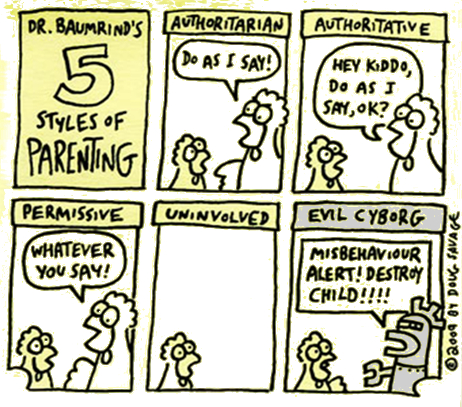 DR. BAUMRIND'S
5
STYLES OF
PARENTING
AUTHORITARIAN
DO AS I SAY!
AUTHORITATIVE
HEY KIDDO,
DO AS I
SAY, OK?
PERMISSIVE
WHATEVER
YOU SAY!
UNINVOLVED
EVIL CYBORG
MISBEHAVIOUR
ALERT! DESTROY
CHILD!!!!
©2009 BY DOUG SAVAGE